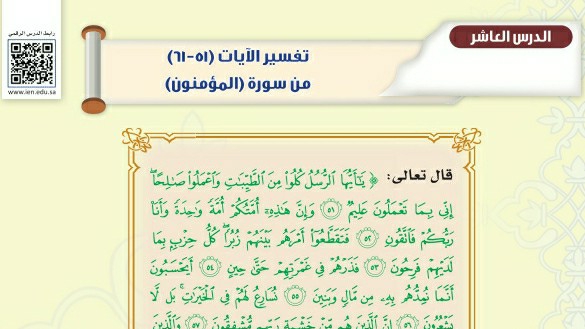 رابط الدرس الرقمي
www.ien.edu.sa
الدرس العاشر
تفسير الآيات (٥١-٦١)
من سورة (المؤمنون)
قال تعالى: ﴿ يَٰٓأَيُّهَا ٱلرُّسُلُ كُلُواْ مِنَ ٱلطَّيِّبَٰتِ وَٱعۡمَلُواْ صَٰلِحًاۖ
إِنِّي بِمَا تَعۡمَلُونَ عَلِيمٞ ٥١ وَإِنَّ هَٰذِهِۦٓ أُمَّتُكُمۡ أُمَّةٗ وَٰحِدَةٗ وَأَنَا۠
رَبُّكُمۡ فَٱتَّقُونِ ٥٢ فَتَقَطَّعُوٓاْ أَمۡرَهُم بَيۡنَهُمۡ زُبُرٗاۖ كُلُّ حِزۡبِۭ بِمَا
لَدَيۡهِمۡ فَرِحُونَ ٥٣ فَذَرۡهُمۡ فِي غَمۡرَتِهِمۡ حَتَّىٰ حِينٍ ٥٤ أَيَحۡسَبُونَ
أَنَّمَا نُمِدُّهُم بِهِۦ مِن مَّالٖ وَبَنِينَ ٥٥ نُسَارِعُ لَهُمۡ فِي ٱلۡخَيۡرَٰتِۚ بَل لَّا
يَشۡعُرُونَ ٥٦ إِنَّ ٱلَّذِينَ هُم مِّنۡ خَشۡيَةِ رَبِّهِم مُّشۡفِقُونَ ٥٧ وَٱلَّذِينَ